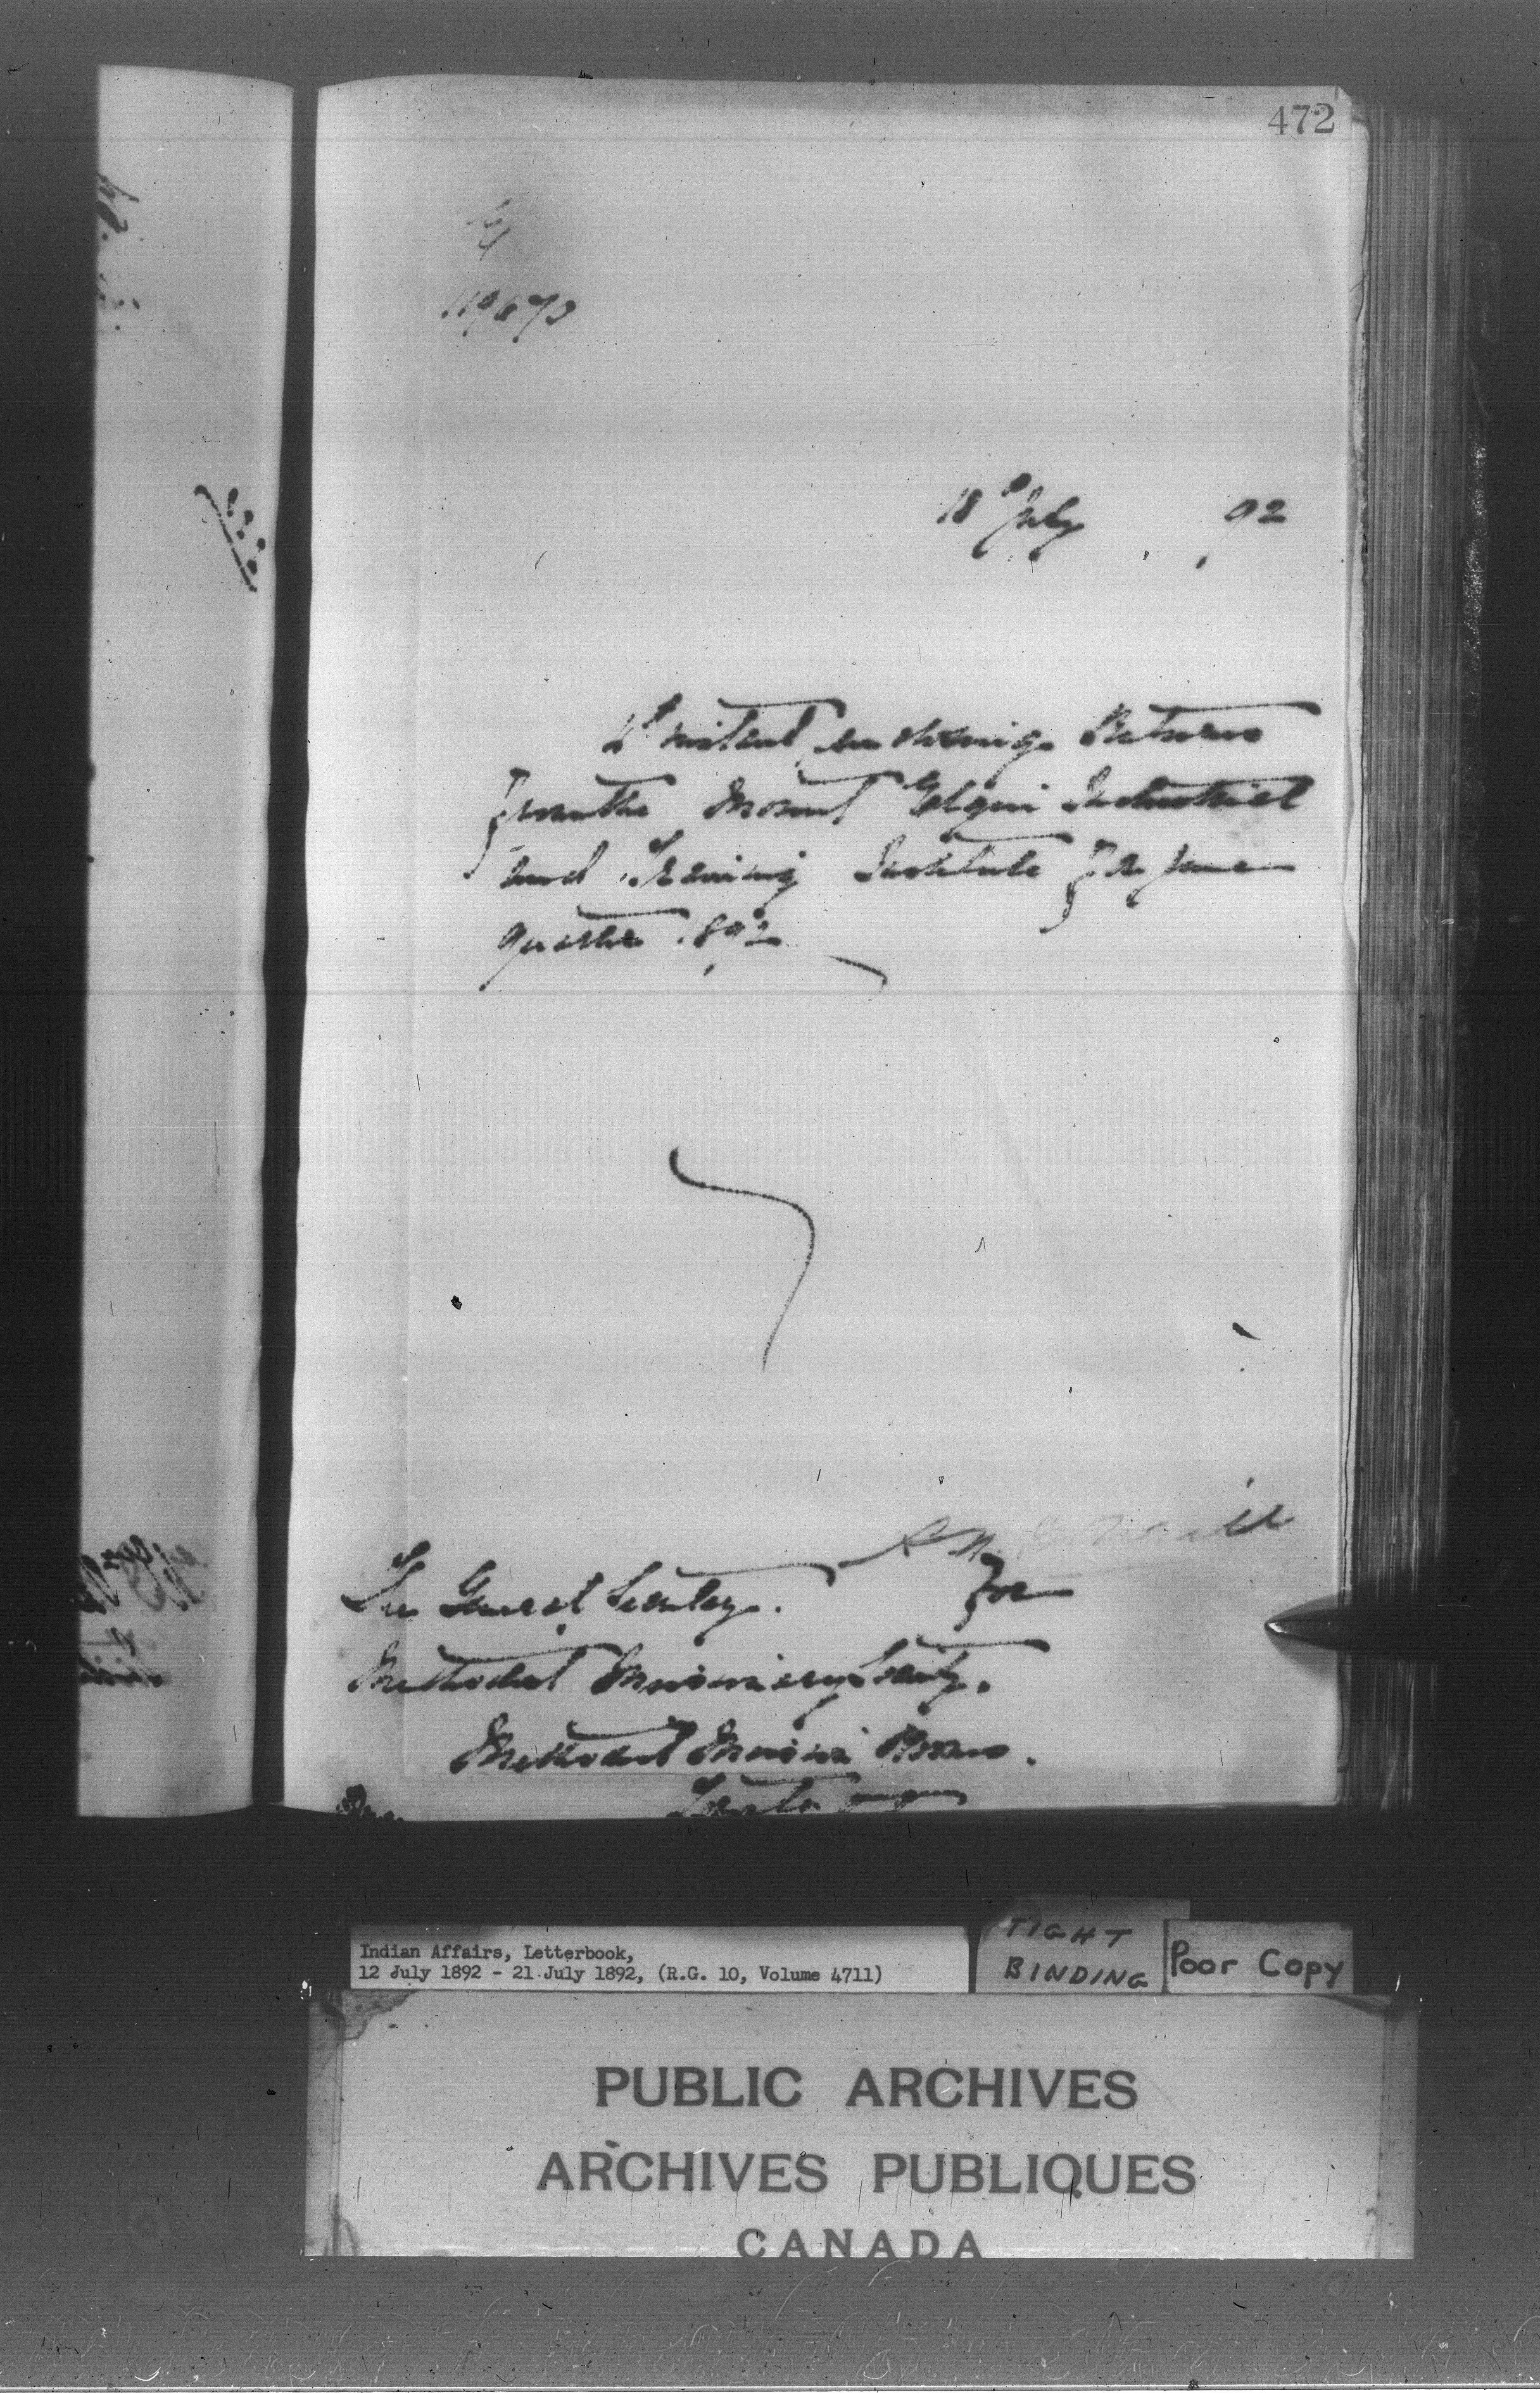 472
119673
18th July 92
instant enclosing Returns
from the Mount Elgin Industrial
and Training Institute for June
quarter 1892
The General Secretary.
for
Methodist Missionary Society.
Methodist Mission Rooms.
Toronto
Indian Affairs, Letterbook,
12 July 1892 - 21 July 1892, (R.G. 10, Volume 4711)
TIGHT
BINDING
Poor Copy
PUBLIC ARCHIVES
ARCHIVES PUBLIQUES
CANADA